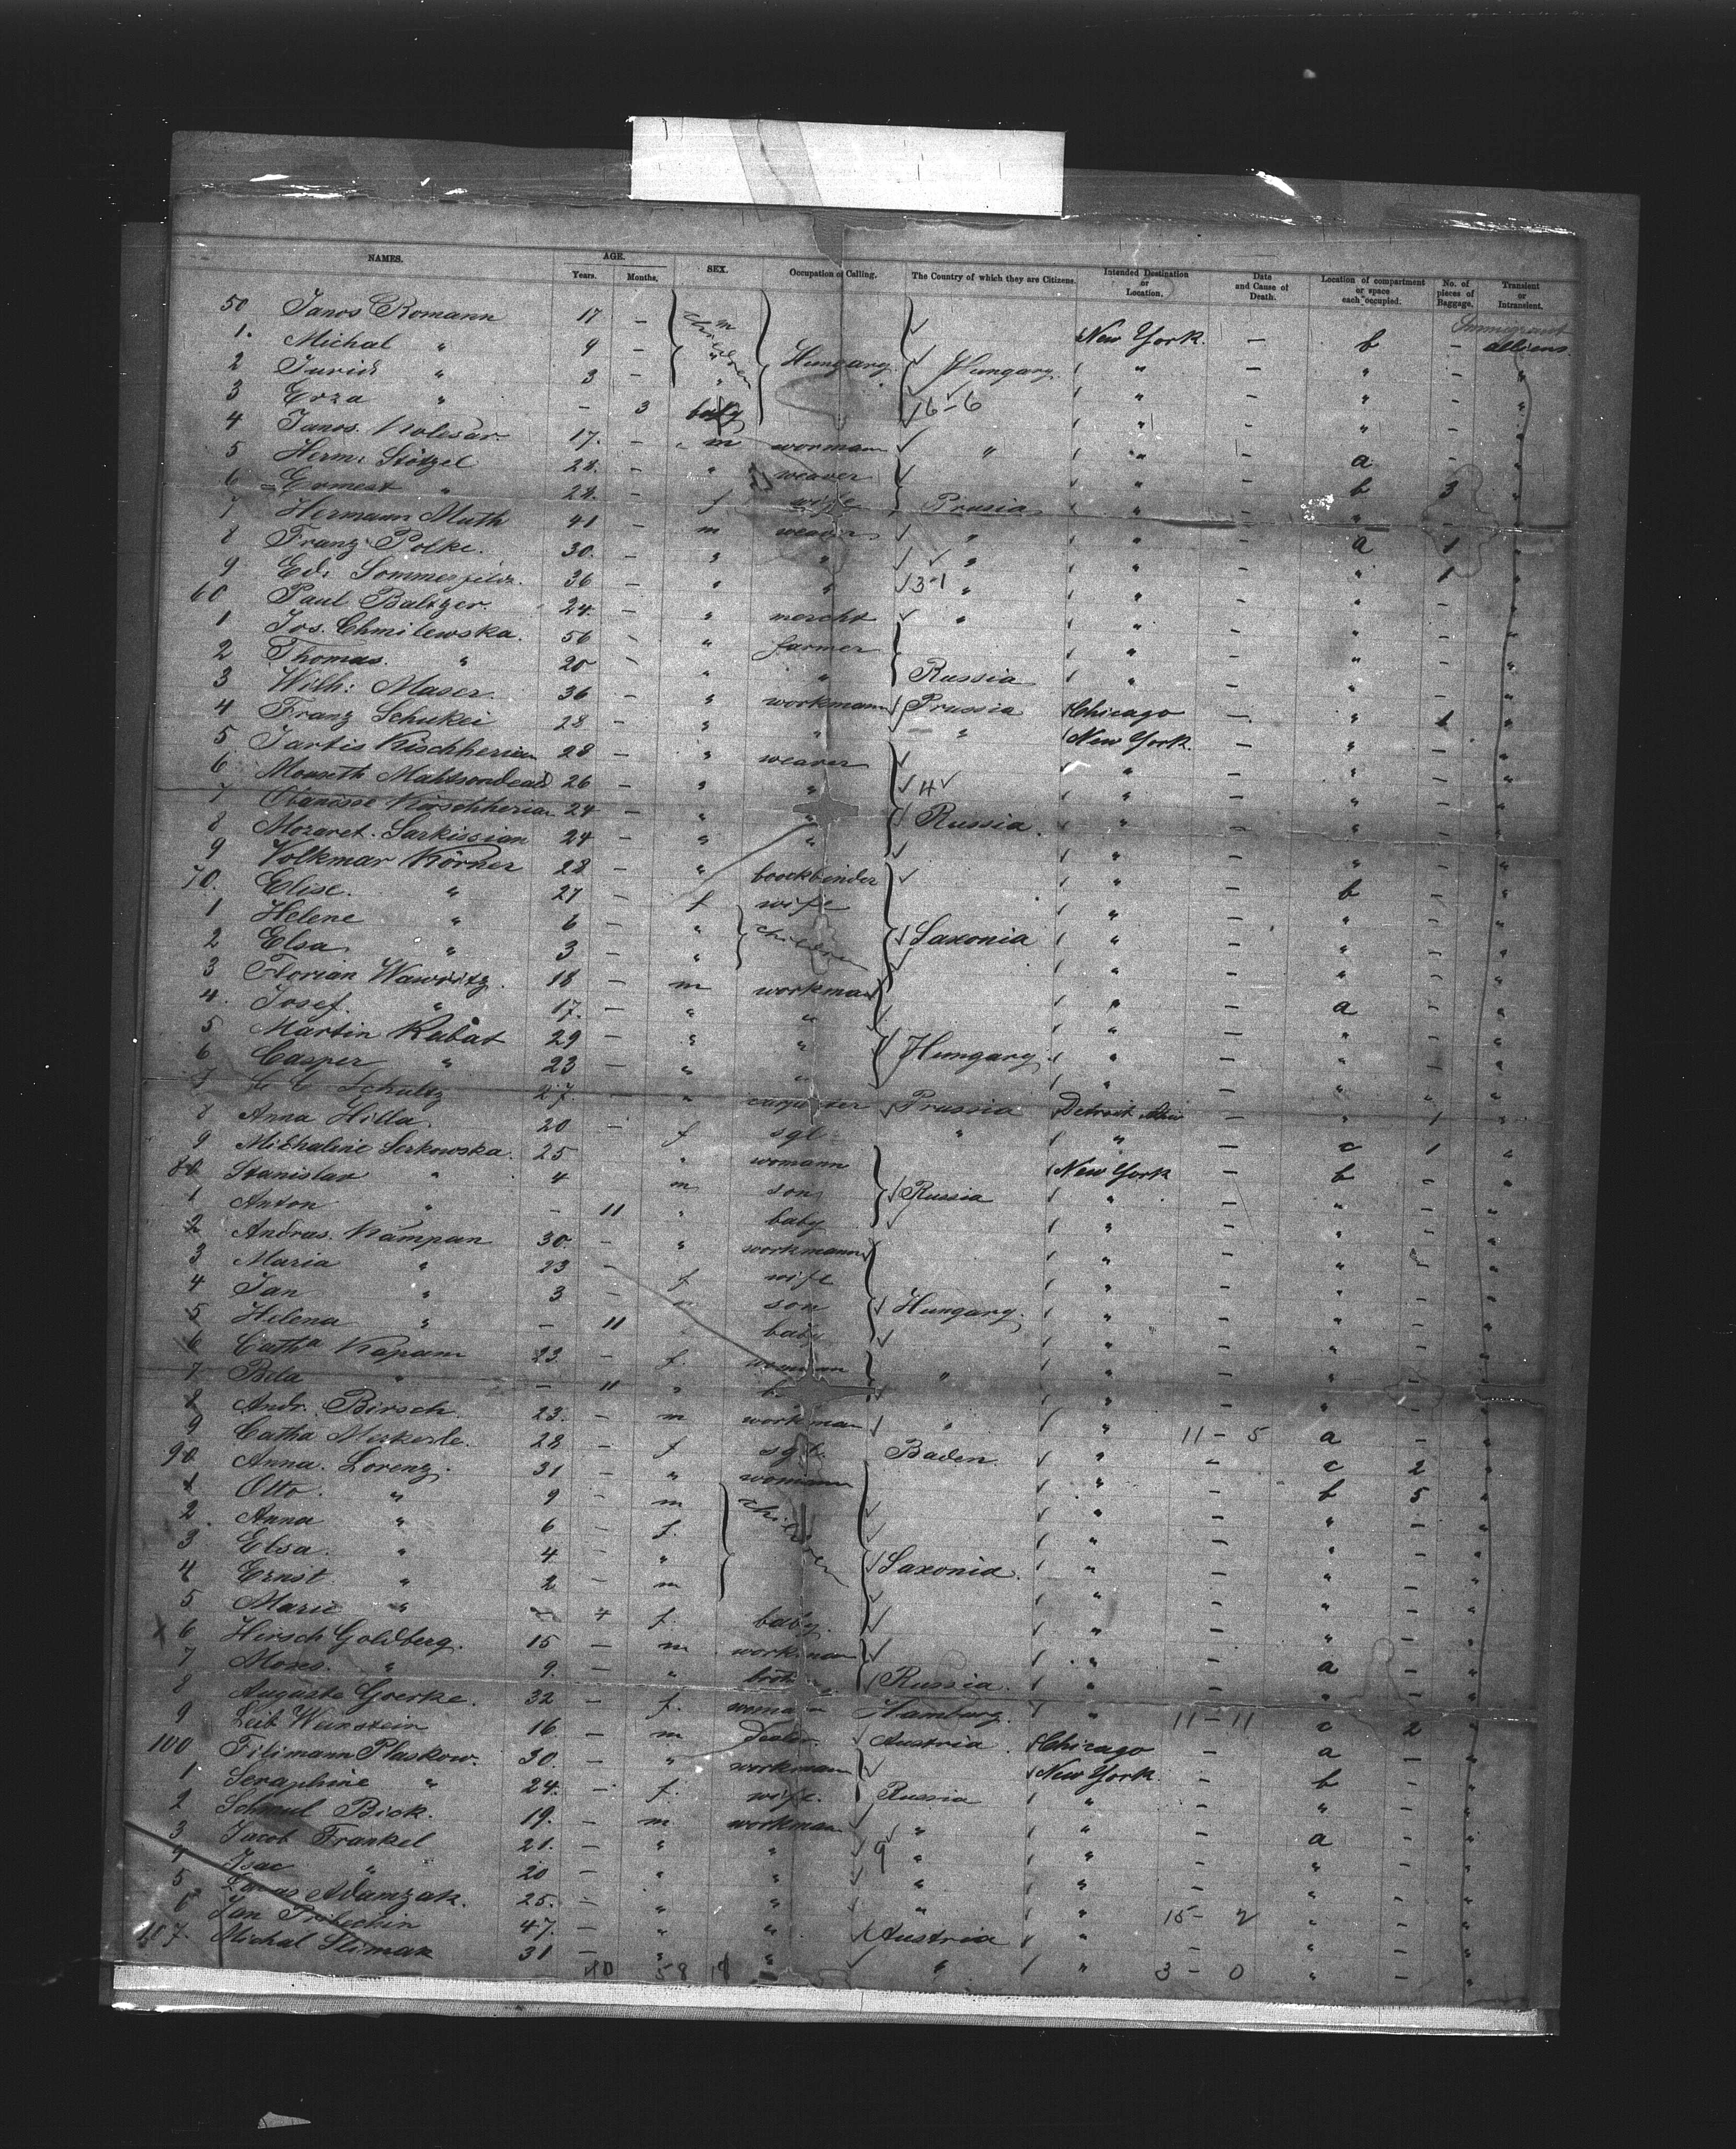 NAMES. AGE. Years. Months. SEX. Occupation or Calling. The Country of which they are Citizens. Intended Destination or Location. Date and Cause of Death. Location of compartment or space each occupied. No. of pieces of Baggage. Transient or Intransient.
50 Janos Romann 17 – m New York. – b – Immigrant aliens
1. Michal " 9 – children " Hungary Hungary " – " – "
2 " 3 – " " – " – "
3 Erza " – 3 baby 16-6 " – " – "
4 Janos Kolesar 17. – m wormann " " – a – "
5 Herm: Stötzel 28. – " weaver " – b 3 "
6 Ernest " 28. – f wife Prusia " – " "
7 Hermann Muth 41 – m weaver " " – a 1 "
8 Franz Polke. 30. – " " " " – " 1 "
9 Ed: 36 – " " 3-1 " " – " – "
60 Paul Baltzer. 24. – " mercht " " – " – "
1 Jos. Chmilewska. 56 – " farmer " – " – "
2 Thomas. " 20 – " " Russia " – " – "
3 Wilh: Maser. 36 – " workmann Prussia Chicago – " 1 "
4 Franz Schukei 28 – " " " New York. – " – "
5 Jartis Kischherian 28 – " weaver " – " – "
6 26 – " " 4 " – " – "
7 Kirschherian 24 – " " Russia. " – " – "
8 Mozaret. Sarkissian 24 – " " " – " – "
9 Volkmar Körner 28 – " boockbinder " – b – "
70. Elise. " 27 – f wife " – " – "
1 Helene " 6 – " children Saxonia " – " – "
2 Elsa " 3 – " " – " – "
3 Florian Wawritz. 18 – m workman " – a – "
4. Josef. " 17. – " " " – " – "
5 Martin Kubat 29 – " " Hungary " – " – "
6 Casper " 23 – " " " – " – "
7 Schultz 27. " carpenter Prussia Detroit – " 1 "
8 Anna Hilla. 20 – f sgl. " " – c 1 "
9 Michaline Serkowska. 25 " womann New York – b – "
80 Stanislav " 4 m son Russia " – " – "
1 Anton " – 11 " baby " – " – "
2 Andras. Kampan 30. – " workmann " – " "
3 Maria " 23 – f wife " – " – "
4 Jan " 3 – son Hungary. " – " – "
5 Helena " – 11 baby " – " – "
6 Catha Kapam 23. – f. woman " " – " – "
7 Bela " – 11 " " – " – "
8 Andr. Birsch. 23. – m workman " " 11-5 a – "
9 Catha 28 – f sgl. Baden. " – c 2 "
90 Anna. Lorenz. 31 – " womann " – b 5 "
1 Otto. " 9 – m children " – " – "
2. Anna " 6 – f. " – " – "
3 Elsa. " 4 – " Saxonia. " – " – "
4 Ernst. " 2 – m " – " – "
5 Marie " – 4 f. baby. " – " – "
6 Hirsch Goldberg. 15 – m workman " – a – "
7 Moses. " 9. – " Russia. " – " – "
8 Auguste Goerke. 32 – f. woman Hamburg. " 11-11 c 2 "
9 Leib Weinstein 16 – m Dealer. Austria. Chicago – a – "
100 Filimann Plaskow. 30. – " workman New York. – b – "
1 Seraphine " 24. – f. wife. Russia " – " – "
2 Schmul Bick. 19. – m workman " " – a – "
3 Jacob Frankel 21. – " " 9 " " – " – "
4 Isac " 20 – " " " " – " – "
5 Adamzak. 25. – " " " " 15-2 " – "
6 Jan 47. – " " Austria " – " – "
107. Michal Slimak 31 – " " " " 3-0 " – "
58